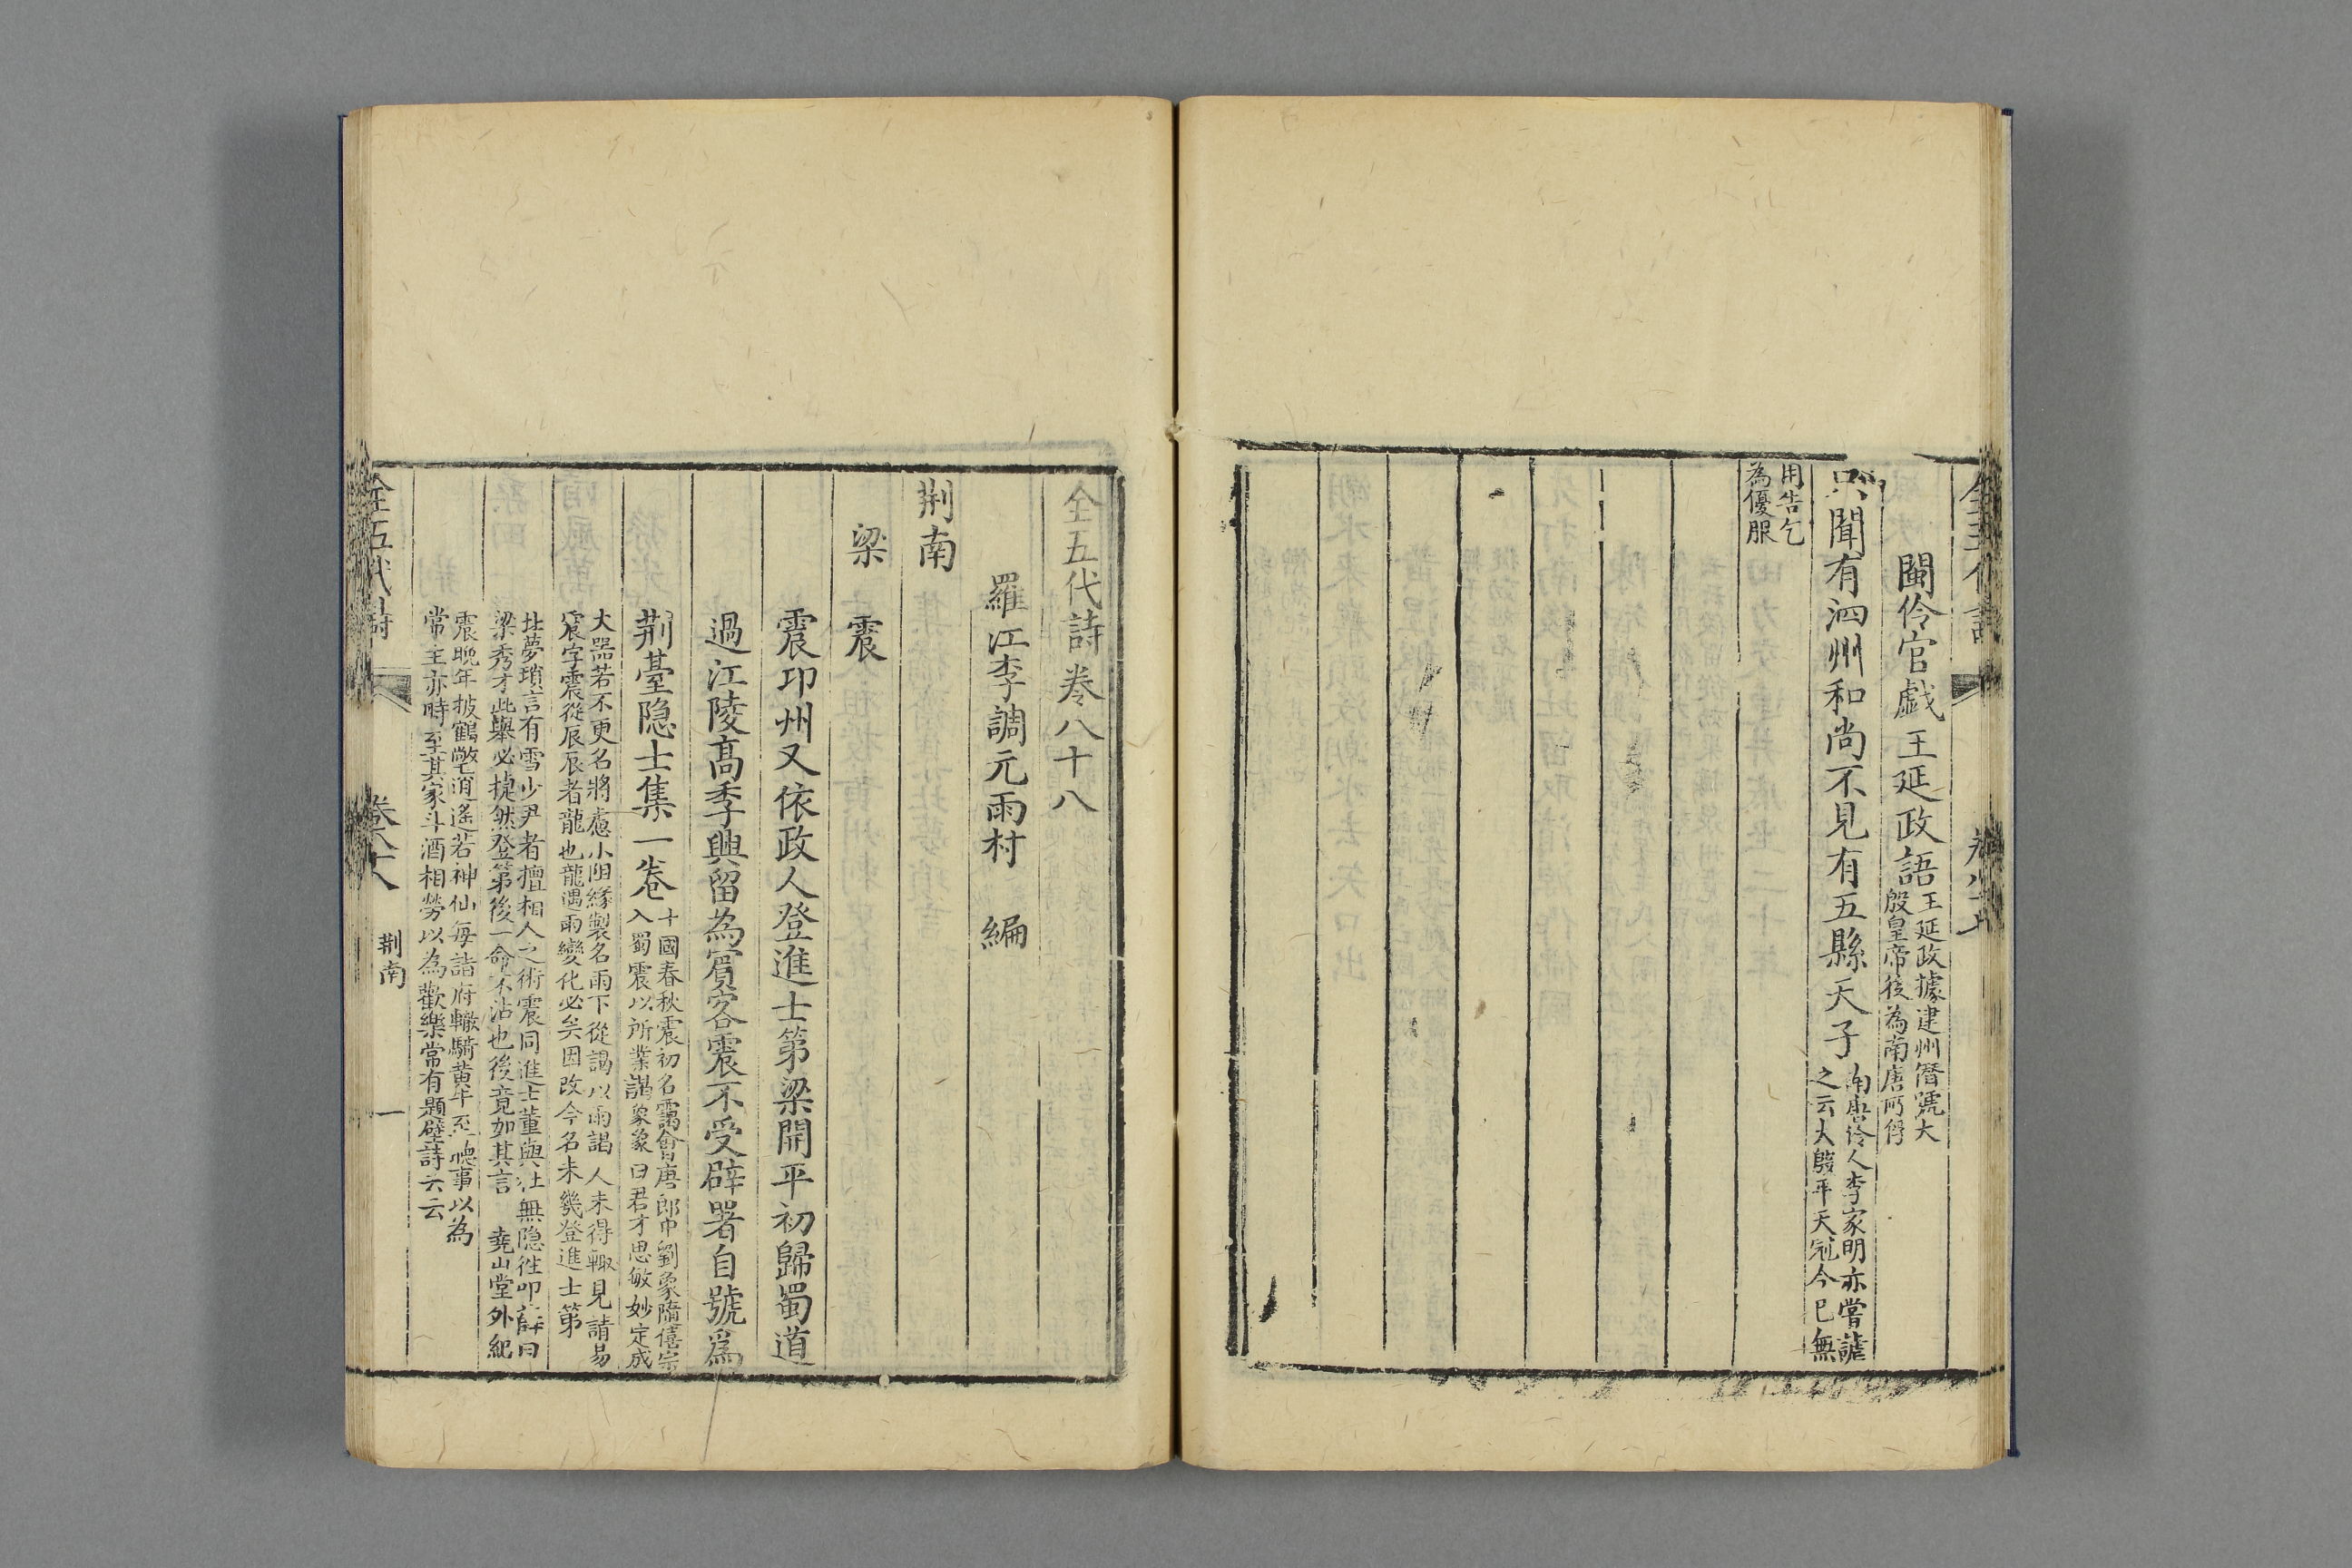 閩伶官戯王延政語王延政據建州僭號大
殷皇帝後為南唐所俘
只聞有泗州和尚不見有五縣天子南唐伶人李家明亦嘗謔
之云大殷平天冠今已無
用告乞
為優服
全五代詩卷八十八
羅江李調元雨村 編
荆南
梁 震
震卭州又依政人登進士第梁開平初歸蜀道
過江陵髙季興留為賔客震不受辟署自號爲
荆臺隐士集一卷十國春秋震初名靄會唐郎中劉象隨僖宗
入蜀震以所業謁象象曰君才思敏妙定成
大器若不更名將慮小阻緣製名雨下從謁以雨謁人未得輙見請易
震字震從辰辰者龍也龍遇雨變化必矣因改今名未幾登進士第
北夢瑣言有雪少尹者擅相人之術震同進士董與杜無隐徃叩薛曰
梁秀才此舉必捷然登第後一命不沾也後竟如其言 堯山堂外紀
震晚年披鶴氅逍遙若神仙每詣府轍騎黄牛至聽事以為
常主亦時至其家斗酒相勞以為歡樂常有題壁詩云云
全五代詩
荆南
一